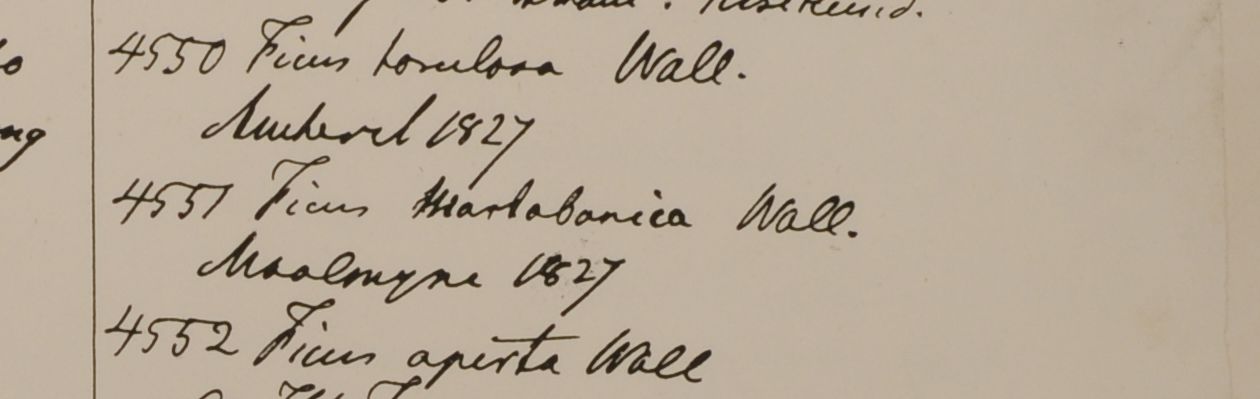 4550 Ficus torulosa Wall.
Amherst 1827
4551 Ficus Martabanica Wall.
Moalmyne 1827
4552 Ficus aperta Wall